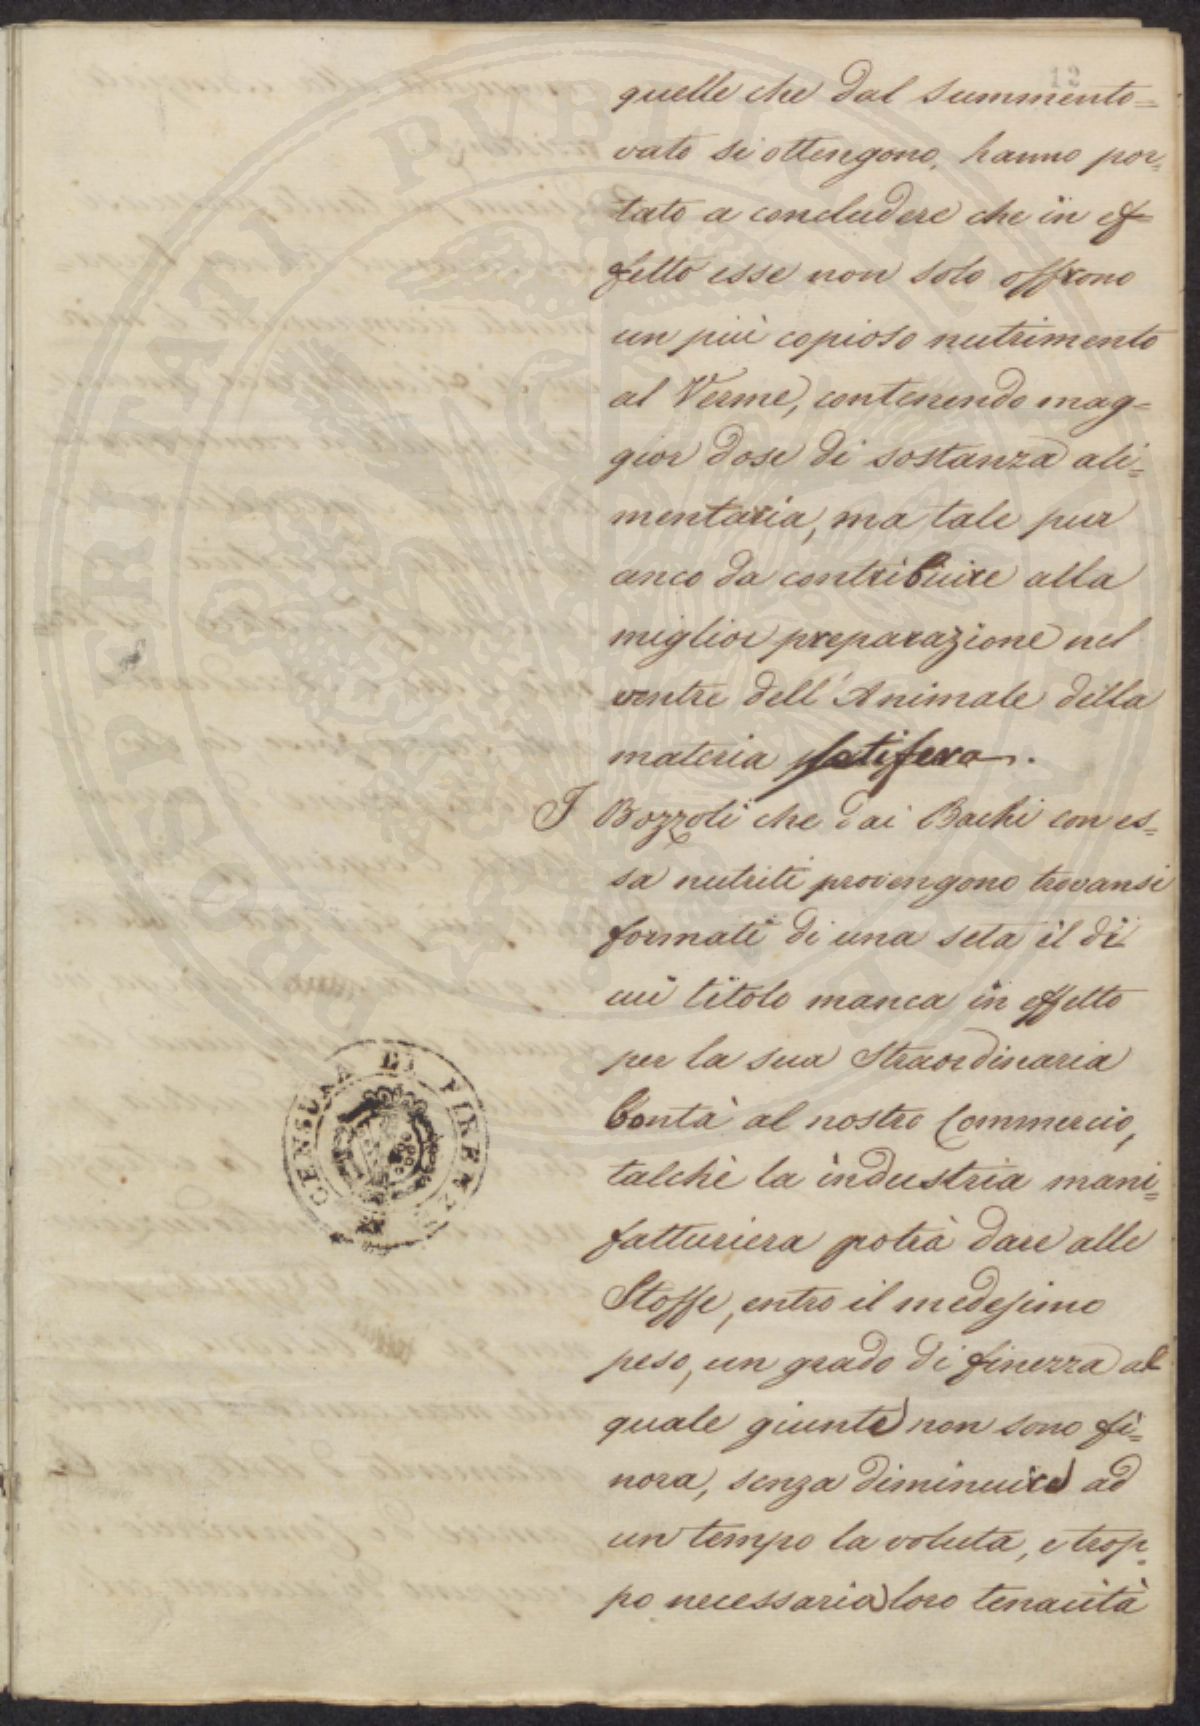 12
quelle che dal summento=
vato si ottengono, hanno por=
tato a concludere che in ef=
fetto esse non solo offrono
un più copioso nutrimento
al Verme, contenendo mag=
gior dose di sostanza ali=
mentaria, ma tale pur
anco da contribuire alla
miglior preparazione nel
ventre dell'Animale della
materia setifera.
I Bozzoli che dai Bachi con es=
sa nutriti provengono trovansi
formati di una seta il di
cui titolo manca in effetto
per la sua straordinaria
bontà al nostro Commercio,
talchè la industria mani=
fatturiera potrà dare alle
Stoffe, entro il medesimo
peso, un grado di finezza al
quale giunte non sono fi=
nora, senza diminuire ad
un tempo la voluta, e trop=
po necessaria loro tenacità
CENSURA DI FIRENZE
PROSPERITATI PVBLICAE